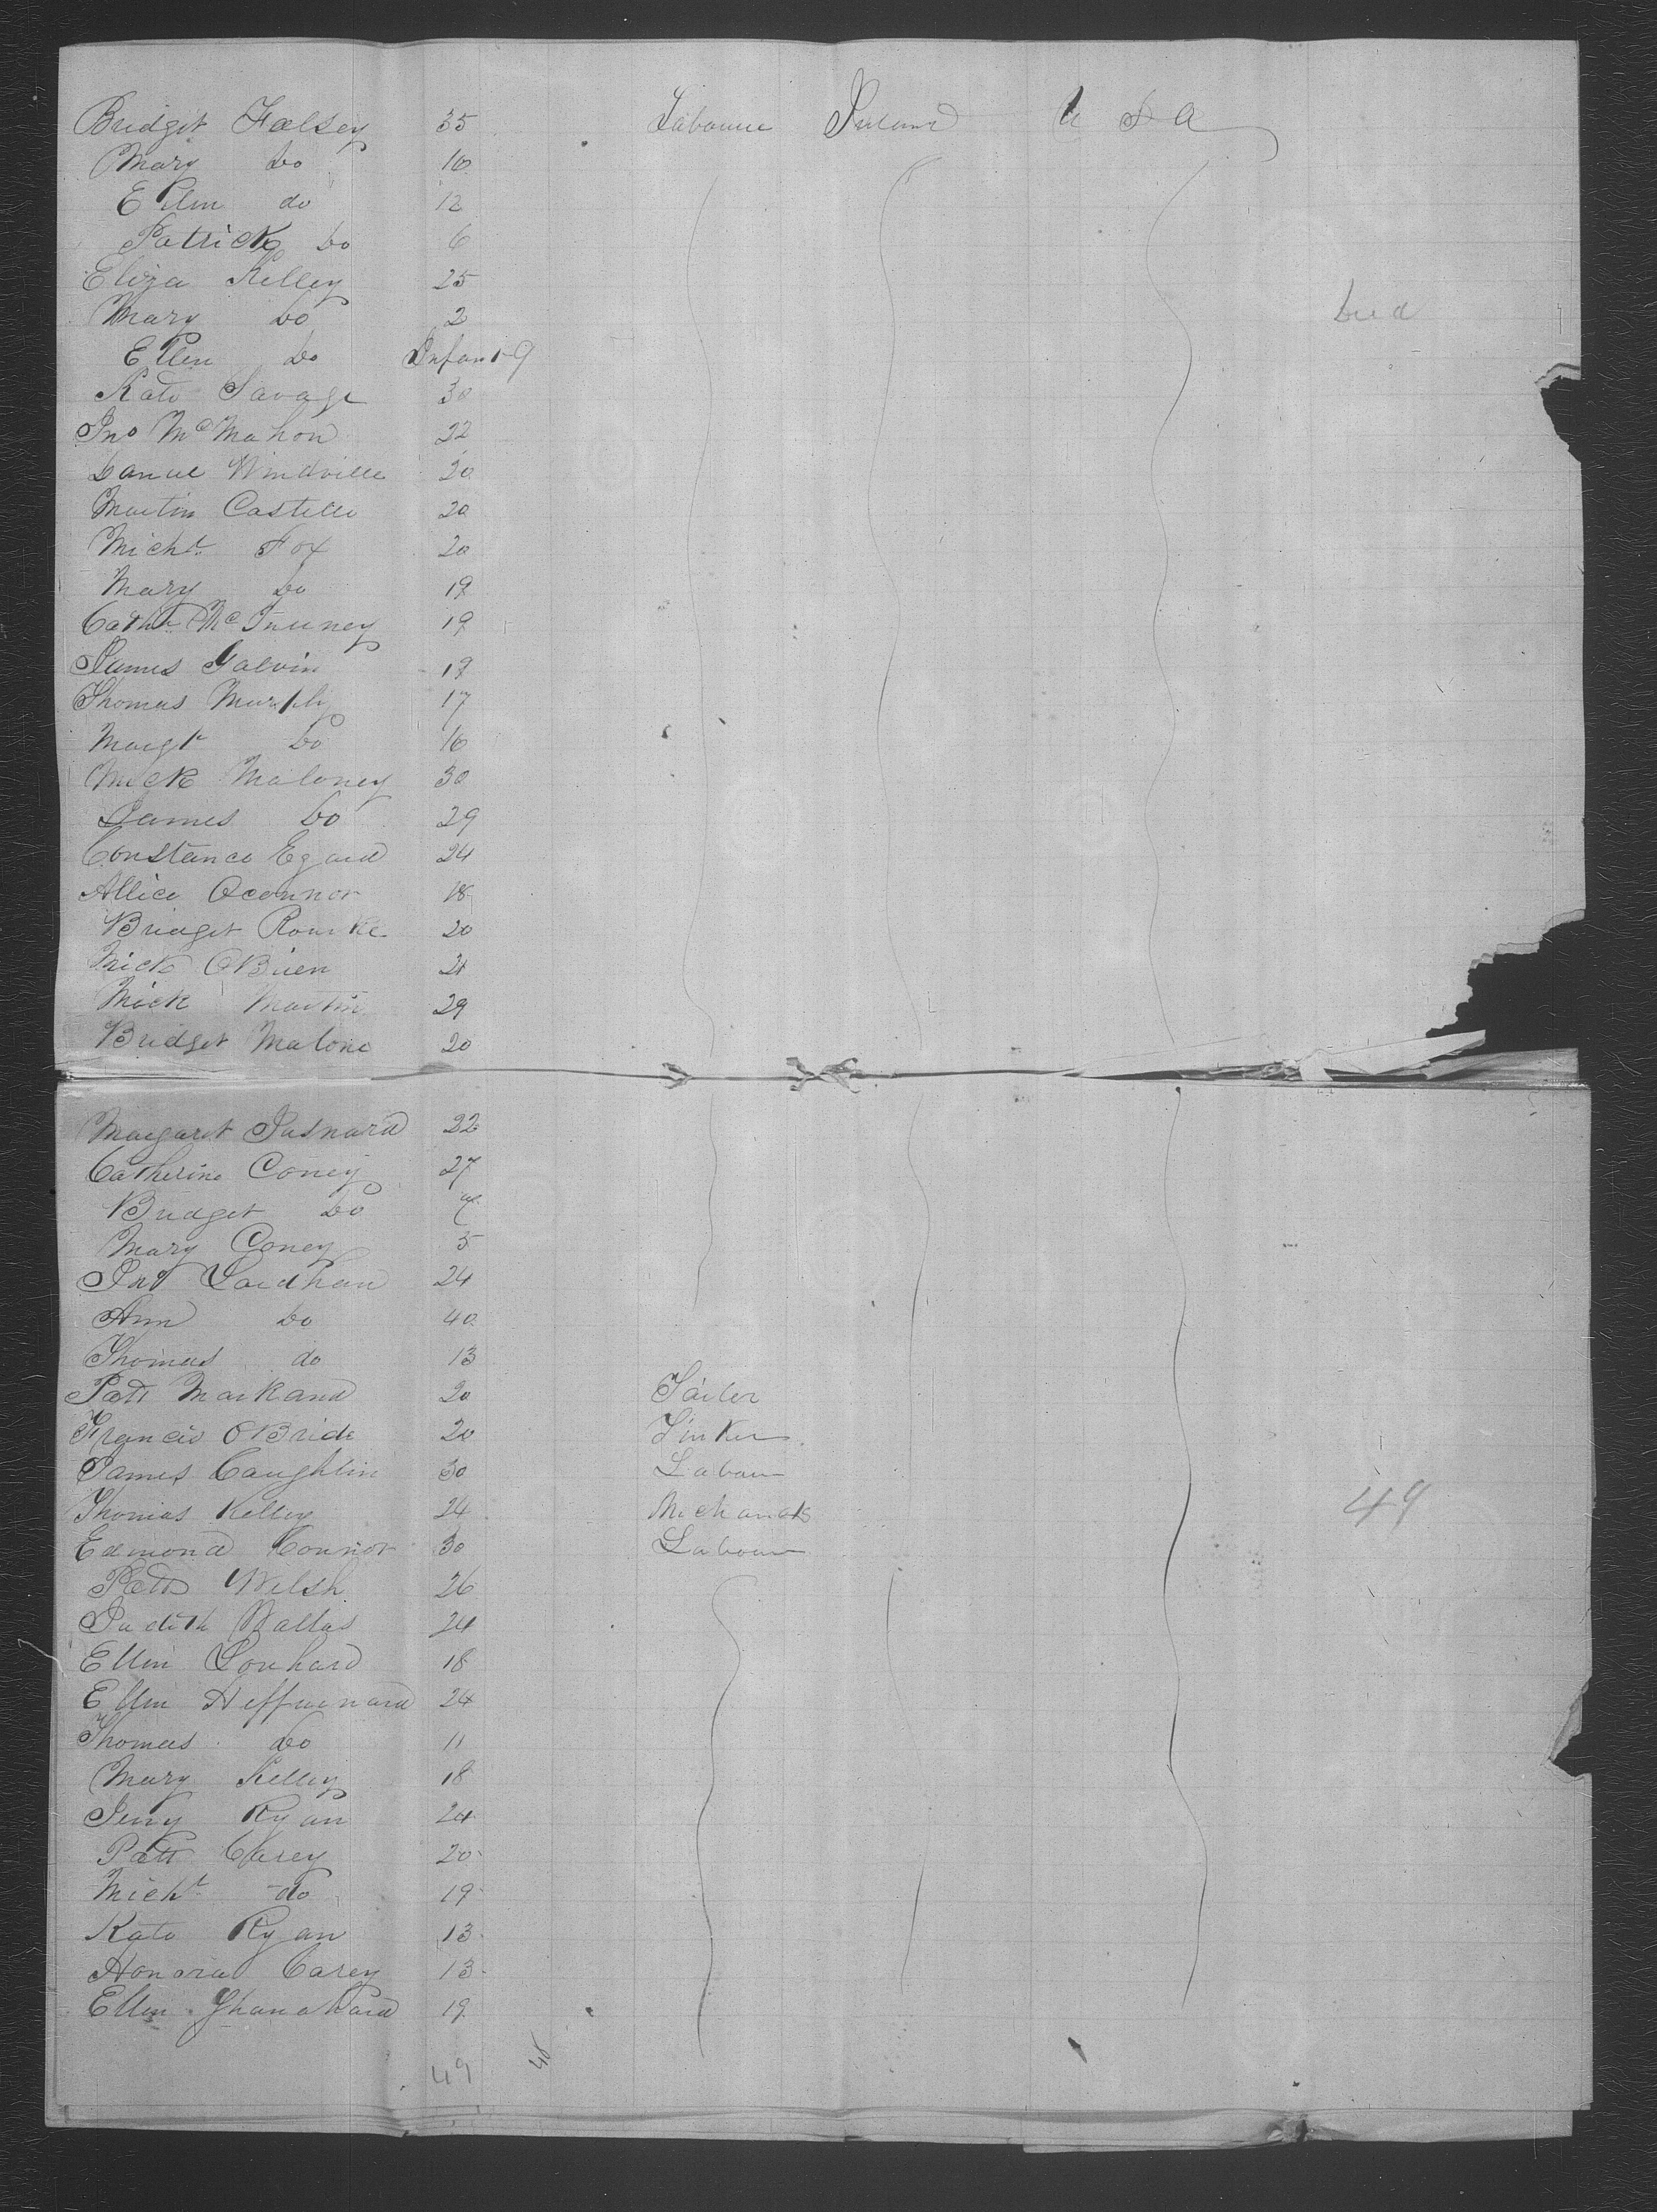 Bridget Falsey 35 Labourer Ireland U S A
Mary Do 16
Ellen do 12
Patrick Do 6
Eliza Kelley 25
Mary Do 2 Died
Ellen Do Infant 9
Kate Savage 30
Jno McMahon 22
Daniel Windville 20
Martin Castello 20
Michl Fox 20
Mary Do 19
Cathe 19
James Galvin 19
Thomas Murphy 17
Margt Do 16
Mick Maloney 30
James Do 29
Constance Egard 24
Allice Oconnor 18
Bridget Rourke 20
Mick OBrien 21
Mick Martin 29
Bridget Malone 20
Margaret 22
Catherine Coney 27
Bridget Do 7
Mary Coney 5
Jno 24
Ann Do 40
Thomas do 13
Patt Markand 20 Tailer
Francis OBride 20 Tinker
James Caughlin 30 Labour
Thomas Kelley 24 Mechanik 49
Edmond Connor 30 Labour
Patt Welsh 26
Judith Wallas 24
Ellin 18
Ellin Heffrenard 24
Thomas Do 11
Mary Kelley 18
Jerry Ryan 24
Patt Carey 20
Michl do 19
Kate Ryan 13
Honora Carey 13
Ellen 19
49 48